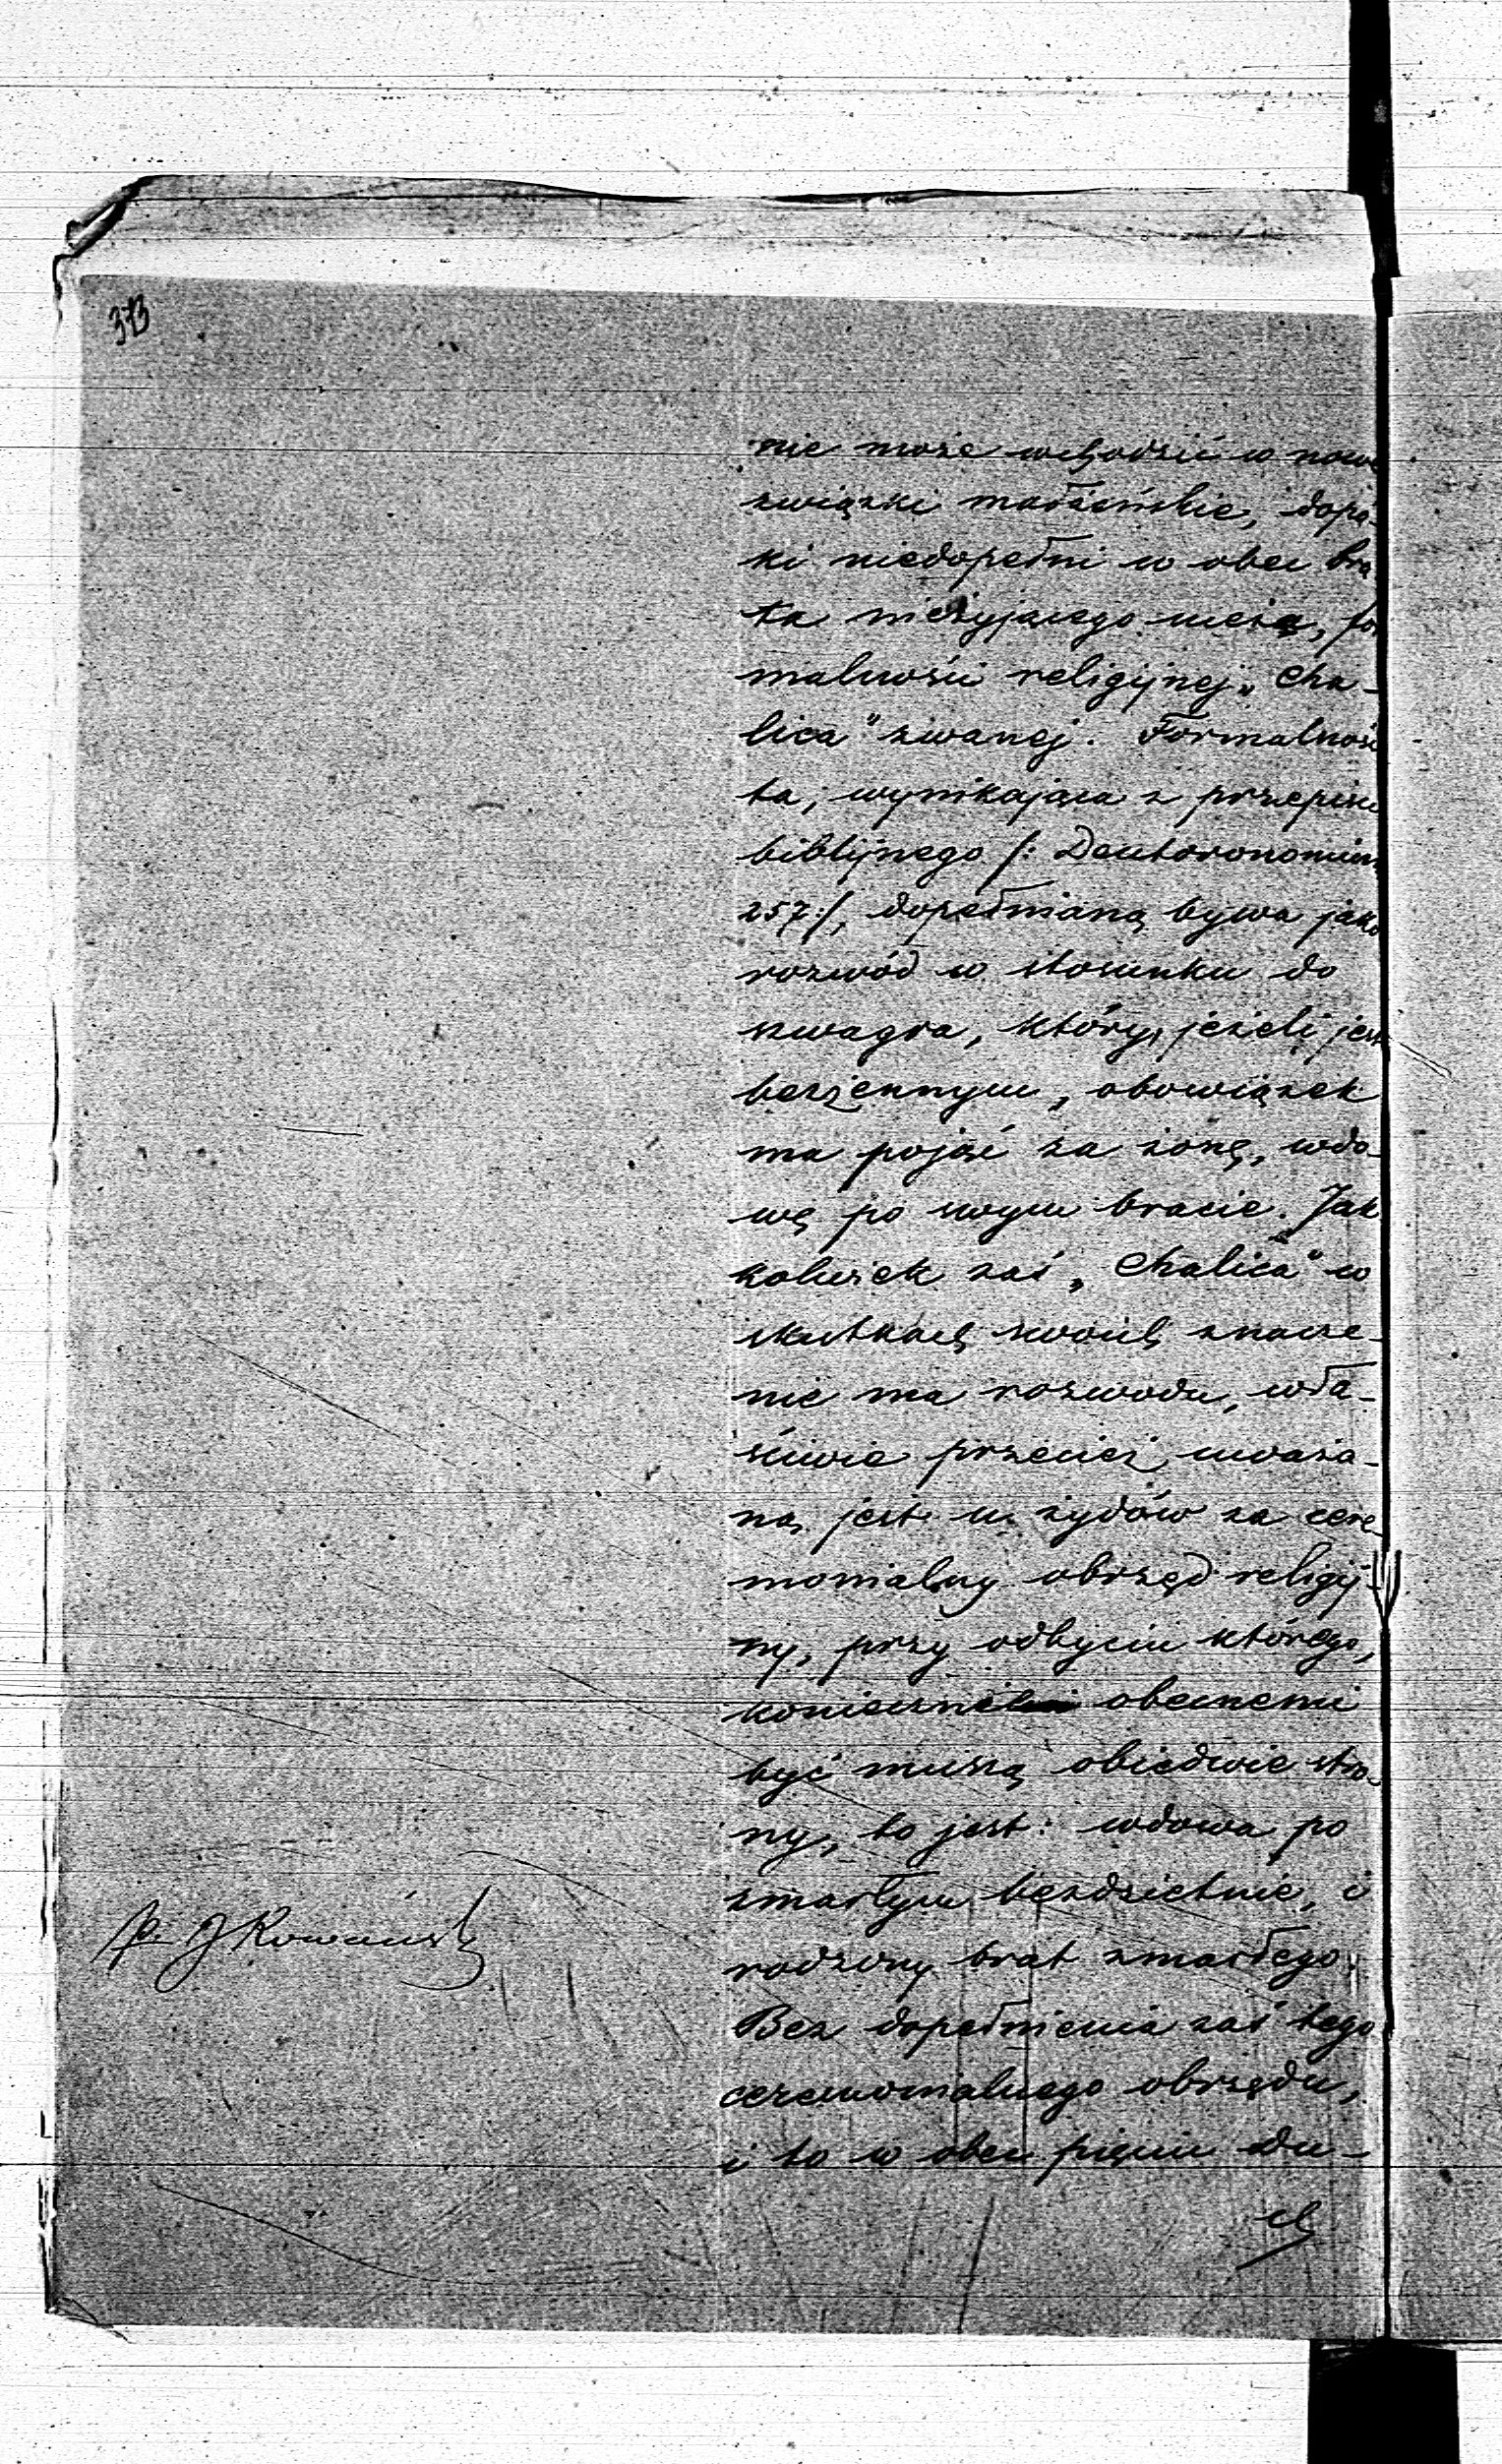 373
nie może wchodzić w nowe
związki małżeńskie, dopó-
ki niedopełni w obec bra
ta nieżyjącego męża, for
malności religijnej „Cha-
lica" zwanej. Formalność
ta, wynikająca z przepisu
biblijnego /: Deutoronomium
257:/, dopełnianą bywa jako
rozwód w stosunku do
szwagra, który, jeżeli jest
bezżennym, obowiązek
ma pojąć za żonę, wdo-
wę po swym bracie. Jak
kolwiek zaś „Chalica" w
skutkach swoich znacze-
nie ma rozwodu, wła-
ściwie przecież uważa-
ną jest u żydów za cere
monialny obrzęd religij-
ny, przy odbyciu którego,
koniecznie obecnemi
być muszą obiedwie stro-
ny, to jest: wdowa po
zmarłym bezdzietnie, i
rodzony brat zmarłego.
Bez dopełnienia zaś tego
ceremonialnego obrzędu,
i to w obec pięciu du-
ch